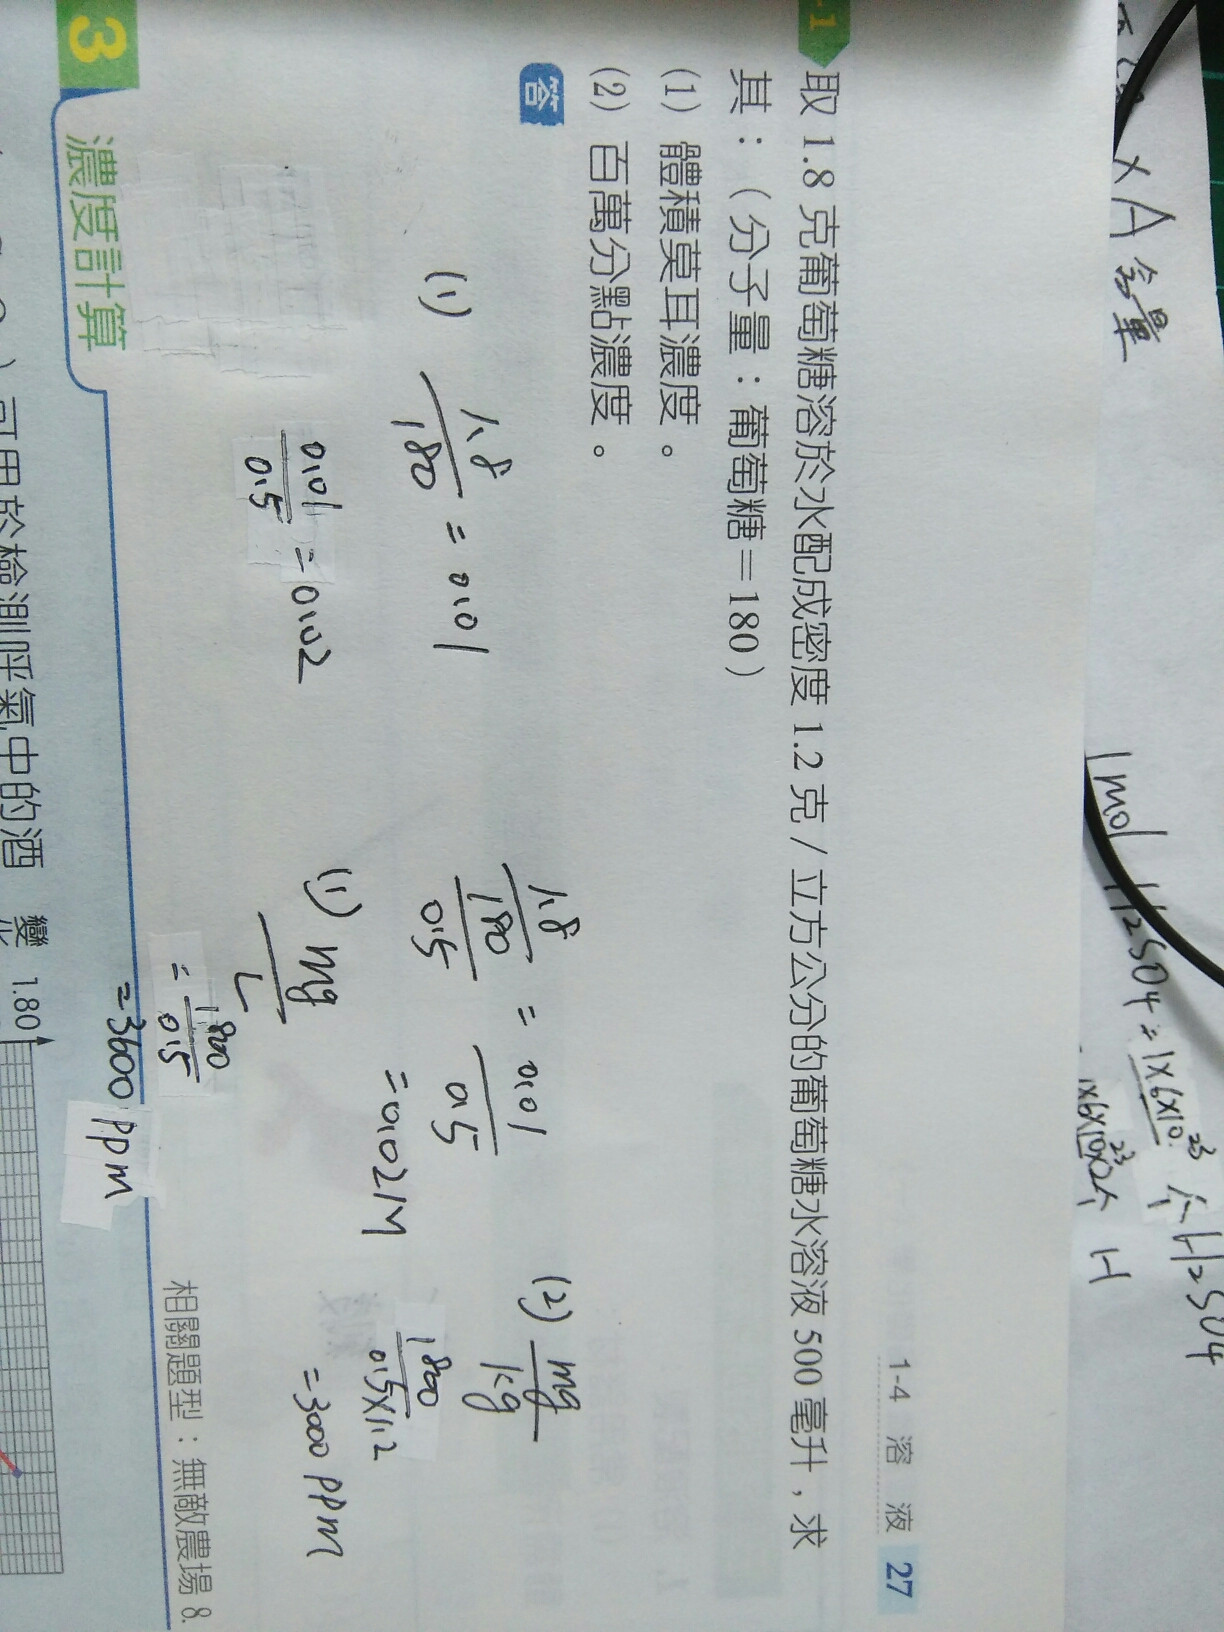 1-4 溶液 27
取 1.8 克葡萄糖溶於水配成密度 1.2 克 / 立方公分的葡萄糖水溶液 500 毫升，求
其：（分子量：葡萄糖＝180）
(1) 體積莫耳濃度。
(2) 百萬分點濃度。
答
(1) 1.8/180 = 0.01
0.01/0.5 = 0.02
1.8/180/0.5 = 0.01/0.5
= 0.02M
(1) mg/L
= 1800/0.5
= 3600 ppm
(2) mg/kg
1800/0.5×1.2
= 3000 ppm
相關題型：無敵農場 8.
3 濃度計算
可用於檢測呼氣中的酒
變
1.80
×A 含量
1mol H2SO4 = 1×6×10^23 个 H2SO4
1×6×10^23×2个 H